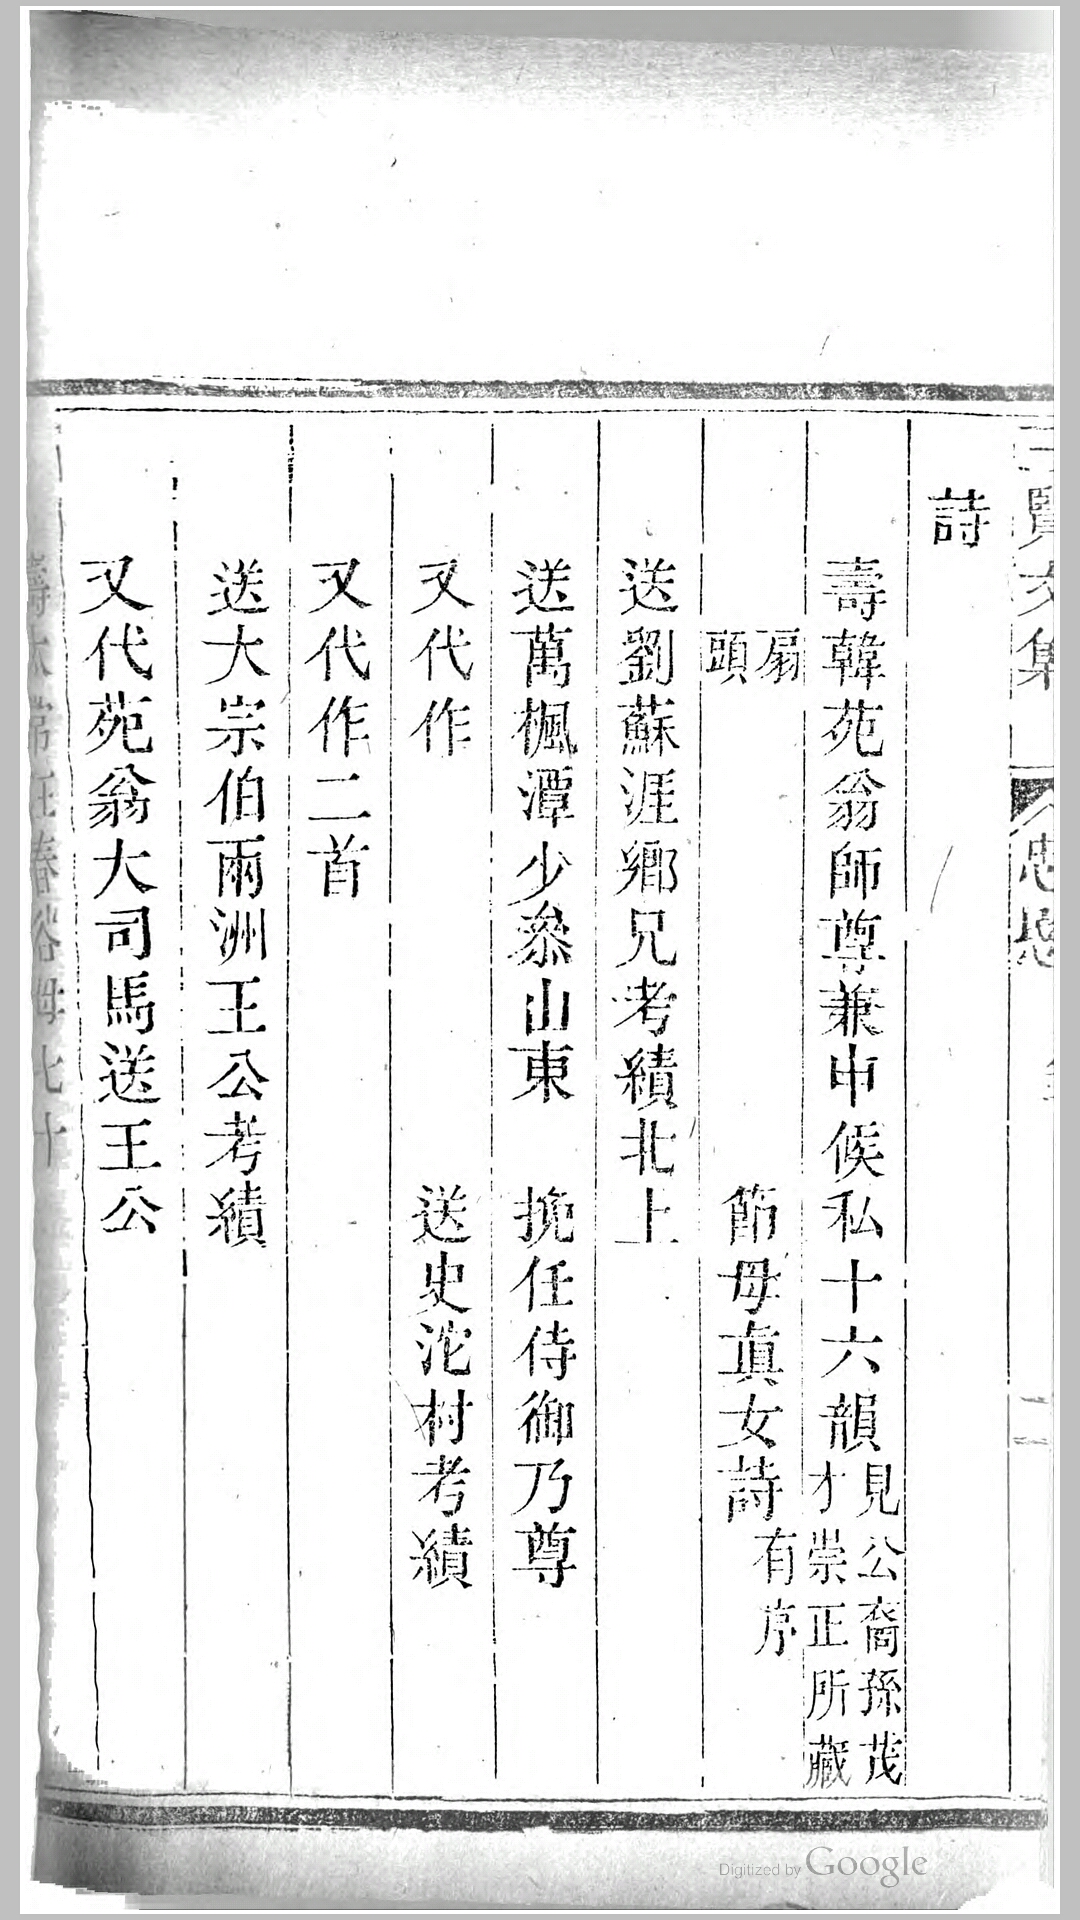 賢文集
忠愍
詩
壽韓苑翁師尊兼申候私十六韻見公裔孫茂才崇正所藏
扇頭
節母真女詩有序
送劉蘇涯鄉兄考績北上
送萬楓潭少叅山東
挽任侍御乃尊
又代作
送史沱村考績
又代作二首
送大宗伯兩洲王公考績
又代苑翁大司馬送王公
Digitized by Google